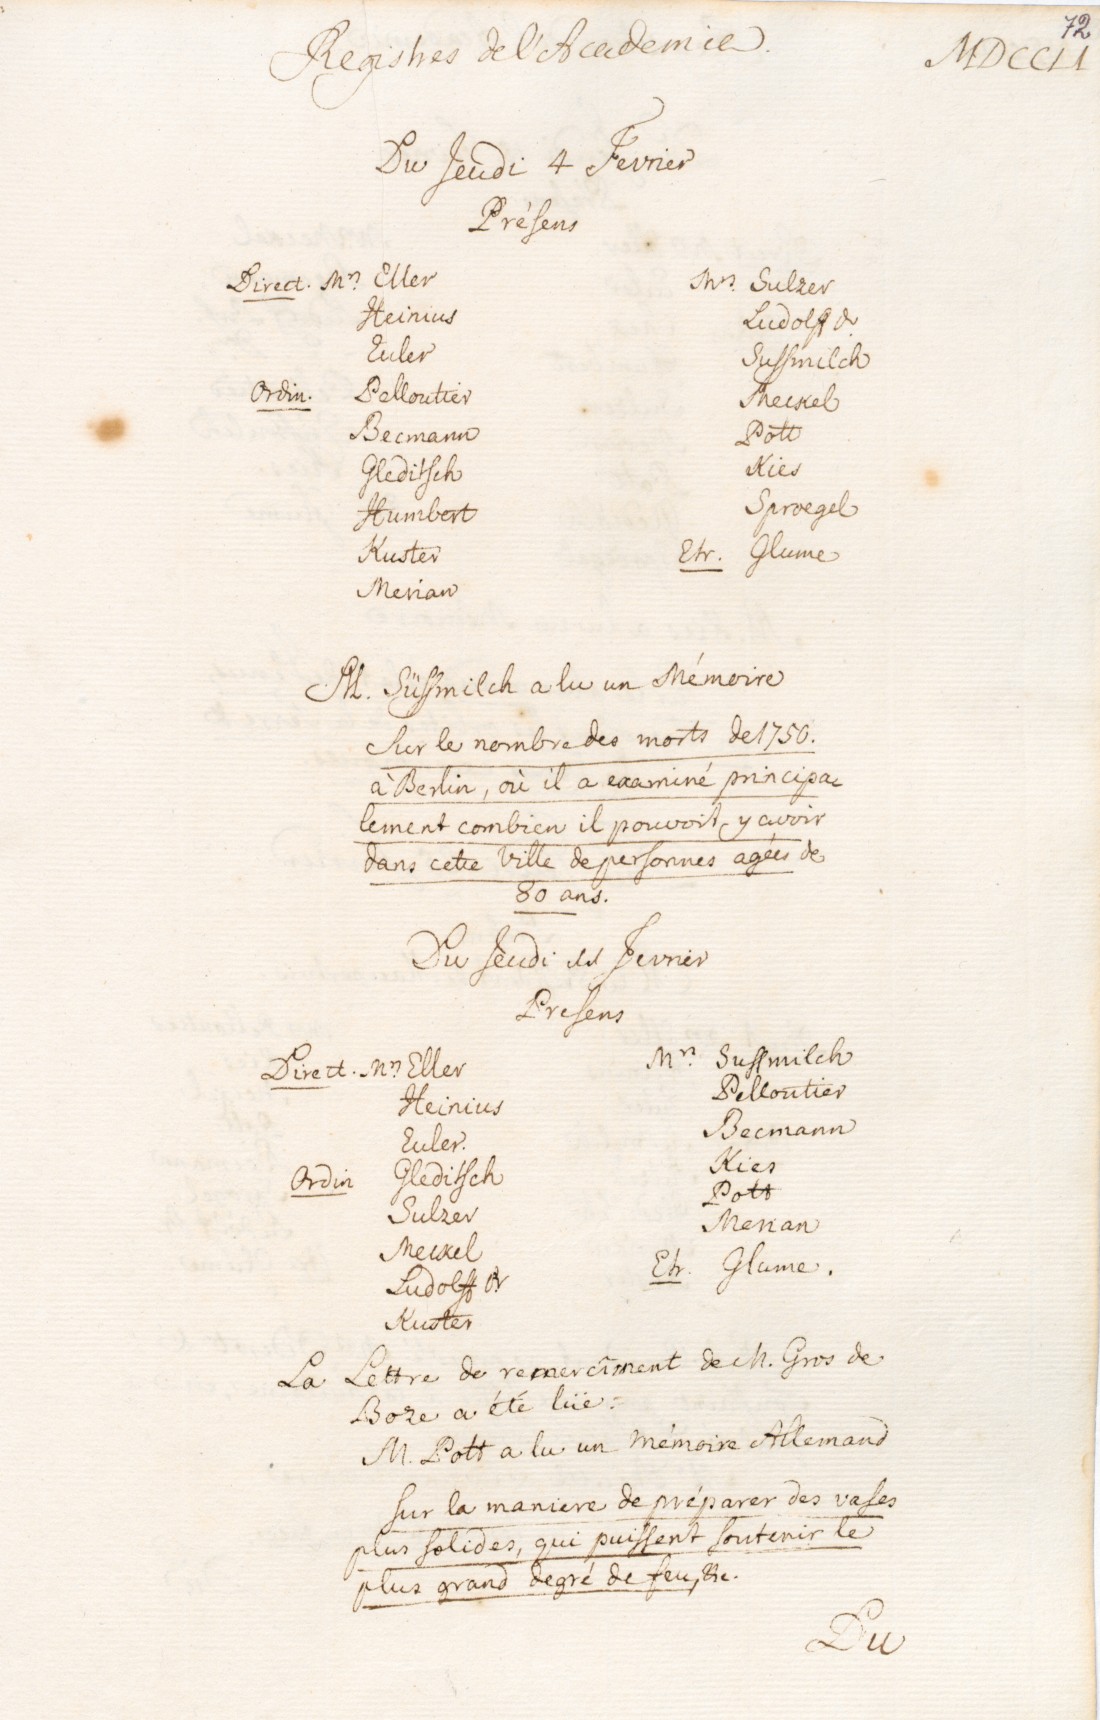 72
Registres de l'Academie.
MDCCLI
Du Jeudi 4 Fevrier
Présens
Direct. Mrs Eller
Heinius
Euler
Ordin. Pelloutier
Becmann
Gleditsch
Humbert
Kuster
Merian
Mrs. Sulzer
Ludolff
Sussmilch
Meckel
Pott
Kies
Sproegel
Etr. Glume
M. Süssmilch a lu un Mémoire
sur le nombre des morts de 1750.
à Berlin, où il a examiné principa
lement combien il pouvoit y avoir
dans cette Ville de personnes agées de
80 ans.
Du Jeudi 11 Fevrier
Presens
Direct. Mrs Eller
Heinius
Euler.
Ordin Gleditsch
Sulzer
Meckel
Ludolff
Kuster
Mrs Sussmilch
Pelloutier
Becmann
Kies
Pott
Merian
Etr. Glume.
La Lettre de remerciment de M. Gros de
Boze a été lüe.
M. Pott a lu un Mémoire Allemand
sur la maniere de préparer des vases
plus solides, qui puissent soutenir le
plus grand degré de feu, &c.
Du